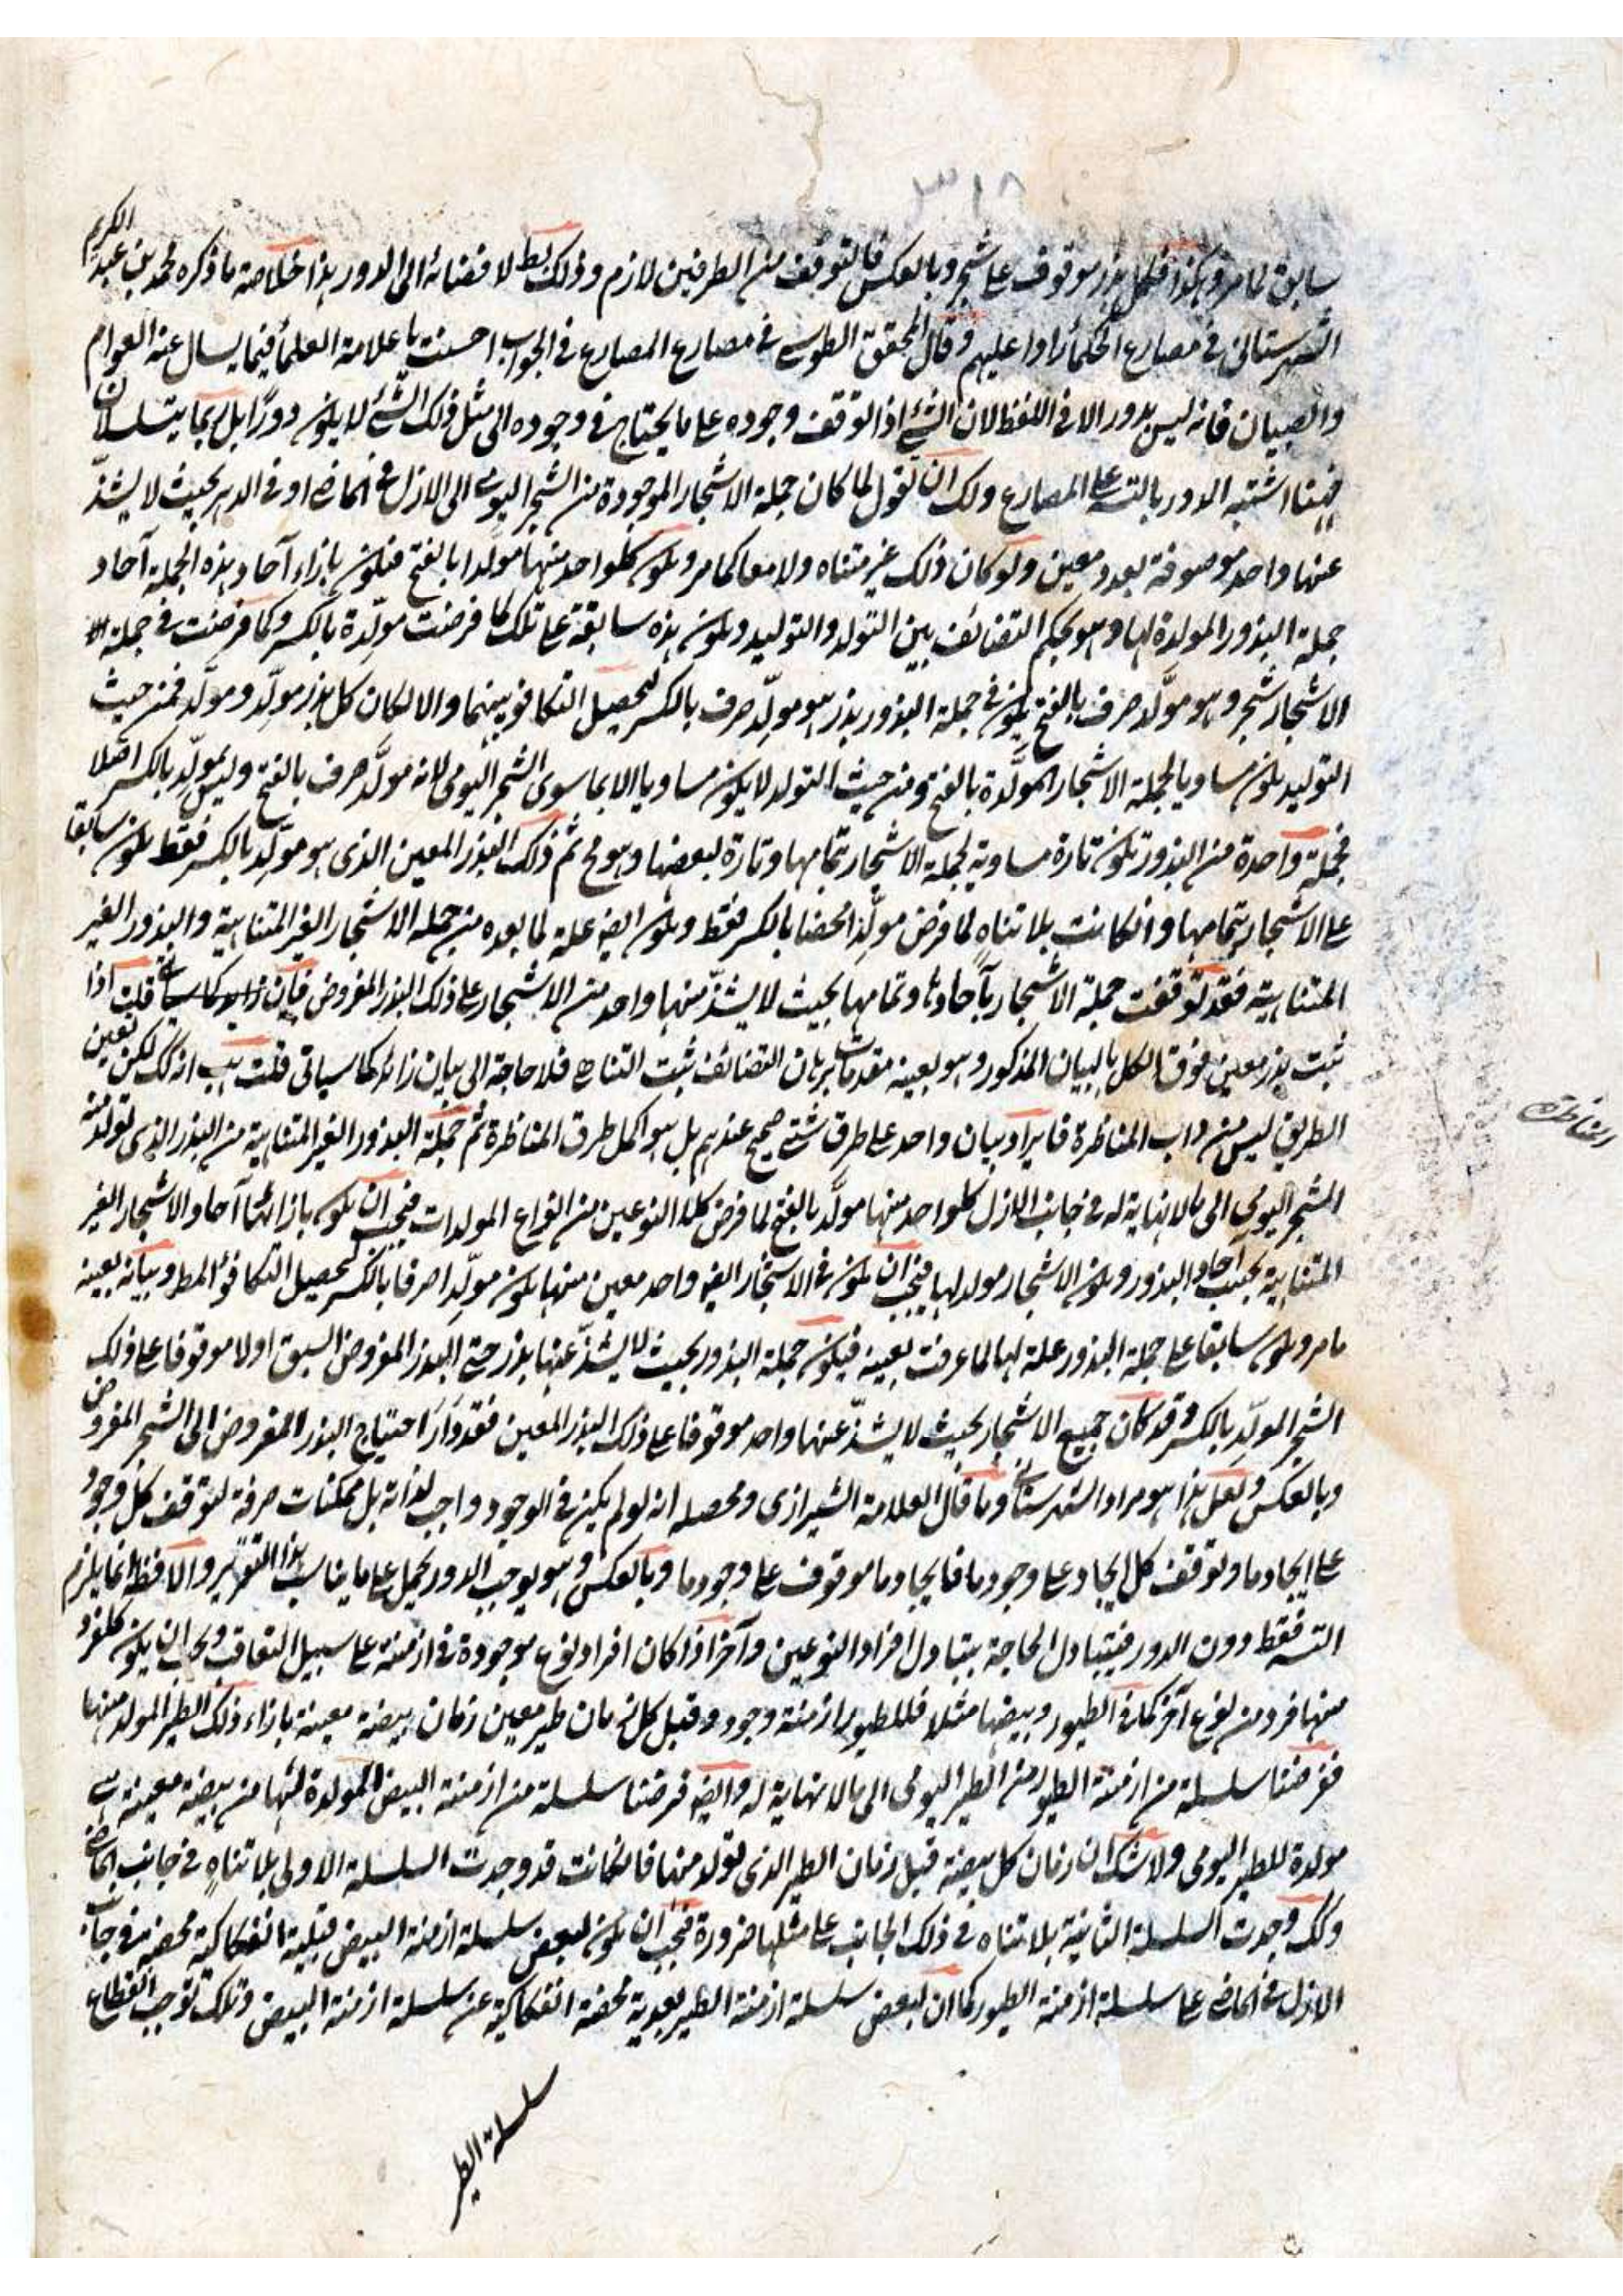 ٣١٨
سابق لما مر وهكذا فكل بذر موقوف على شجر وبالعكس فالتوقف من الطرفين لازم وذلك بط لافضائه الى الدور هذا خلاصة ما ذكره محمد بن عبد الكريم
الشهرستانى فى مصارع الحكماء رادا عليهم وقال المحقق الطوسى فى مصارع المصارع فى الجواب احسنت يا علامة العلماء فيما يسال عنه العوام
والصبيان فانه ليس بدور الا فى اللفظ لان الشئ اذا توقف وجوده على ما يحتاج فى وجوده الى مثل ذلك الشئ لا يكون دورا بل ربما يتسلسلان
فهنا اشتبه الدور بالتسه على المصارع ولك ان تقول لما كان جملة الاشجار الموجودة من الشجر اليومى الى الازل فى الماضى او فى الدهر بحيث لا يشذ
عنها واحد موصوفة بعدد معين ولو كان ذلك غير متناه ولا معا كما مر ويكون كلواحد منها مولدا بالفتح فيكون بازاء آحاد هذه الجملة آحاد
جملة البذور المولدة لها وهو بحكم التضائف بين التولد والتوليد ويكون هذه سابقة على تلك كما فرضت مولدة بالكسر وكما فرضت فى جملة
الاشجار شجر وهو مولد صرف بالفتح يكون فى جملة البذور بذر هو مولد صرف بالكسر لتحصيل التكافو بينهما والا لكان كل بذر مولد ومولد فمن حيث
التوليد يكون مساويا لجملة الاشجار المولدة بالفتح ومن حيث التولد لا يكون مساويا الا بما سوى الشجر اليومى لانه مولد صرف بالفتح وليس بمولد بالكسر اصلا
فجملة واحدة من البذور تكون تارة مساوية لجملة الاشجار بتمامها وتارة لبعضها وهو مح ثم ذلك البذر المعين الذى هو مولد بالكسر فقط يكون سابقا
على الاشجار بتمامها وان كانت بلا تناه لما فرض مولدا محضا بالكسر فقط ويكون ايضا علة لما بعده من جملة الاشجار الغير المتناهية والبذور الغير
المتناهية فقد توقفت جملة الاشجار بآحادها وتمامها بحيث لا يشذ منها واحد من الاشجار على ذلك البذر المفروض فان قلت اذا
ثبت بذر معين فوق الكل بالبيان المذكور وهو بعينه مقدمات برهان التضائف ثبت التناهى فلا حاجة الى بيان زائد كما سياتى قلت هب انه كك لكن تعين
الطريق ليس من داب المناظرة فايراد بيان واحد على طرق شتى صحيح عندهم بل هو اكمل طرق المناظرة ثم جملة البذور الغير المتناهية من البذر الذى تولد منه
الشجر اليومى الى ما لا نهاية له فى جانب الازل كلواحد منها مولد بالفتح لما فرض كلا النوعين من انواع المولدات فيجب ان يكون بازائها آحاد الاشجار الغير
المتناهية بحسب آحاد البذور ويكون الاشجار مولد لها فيجب ان يكون فى الاشجار ايضا واحد معين منها يكون مولدا صرفا بالكسر لتحصيل التكافؤ المط وبيانه بعينه
ما مر ويكون سابقا على جملة البذور علة لها لما عرفت بعينه فيكون جملة البذور بحيث لا يشذ عنها بذر حتى البذر المفروض السبق اولا موقوفا على ذلك
الشجر المولد بالكسر وقد كان جميع الاشجار بحيث لا يشذ عنها واحد موقوفا على ذلك البذر المعين فقد دار احتياج البذر المفروض الى الشجر المفروض
وبالعكس ولعل هذا هو مراد الشهرستانى وما قال العلامة الشيرازى ومحصله انه لو لم يكن فى الوجود واجب لذاته بل ممكنات صرفة لتوقف كل وجود
على ايجاد ما وتوقف كل ايجاد على وجود ما فايجاد ما موقوف على وجود ما وبالعكس وهو يوجب الدور يحمل على ما يناسب هذا التقرير والا فظ انما يلزم
التسه فقط دون الدور فيتبادل الحاجة بتبادل افراد النوعين وآخر اذا كان افراد نوع موجودة فى ازمنة على سبيل التعاقب ويجب ان يكون كلفرد
منها فرد من نوع آخر كما فى الطيور وبيضها مثلا فللطيور ازمنة وجود وقبل كل زمان طير معين زمان بيضة معينة بازاء ذلك الطير المولد منها
ففرضنا سلسلة من ازمنة الطيور من الطير اليومى الى ما لا نهاية له وايضا فرضنا سلسلة من ازمنة البيض المولدة لها من بيضة معينة هى
مولدة للطير اليومى ولا شك ان زمان كل بيضة قبل زمان الطير الذى تولد منها فان كانت قد وجدت السلسلة الاولى بلا تناه فى جانب الماضى
وكك وجدت السلسلة الثانية بلا تناه فى ذلك الجانب على مثلها ضرورة فيجب ان يكون لبعض سلسلة ازمنة البيض قبلية انفكاكية محضة فى جانب
الازل فى الماضى على سلسلة ازمنة الطيور كما ان لبعض سلسلة ازمنة الطير بعدية محضة انفكاكية عن سلسلة ازمنة البيض وتلك توجب انقطاع
سلسلة الطير
المناظرة